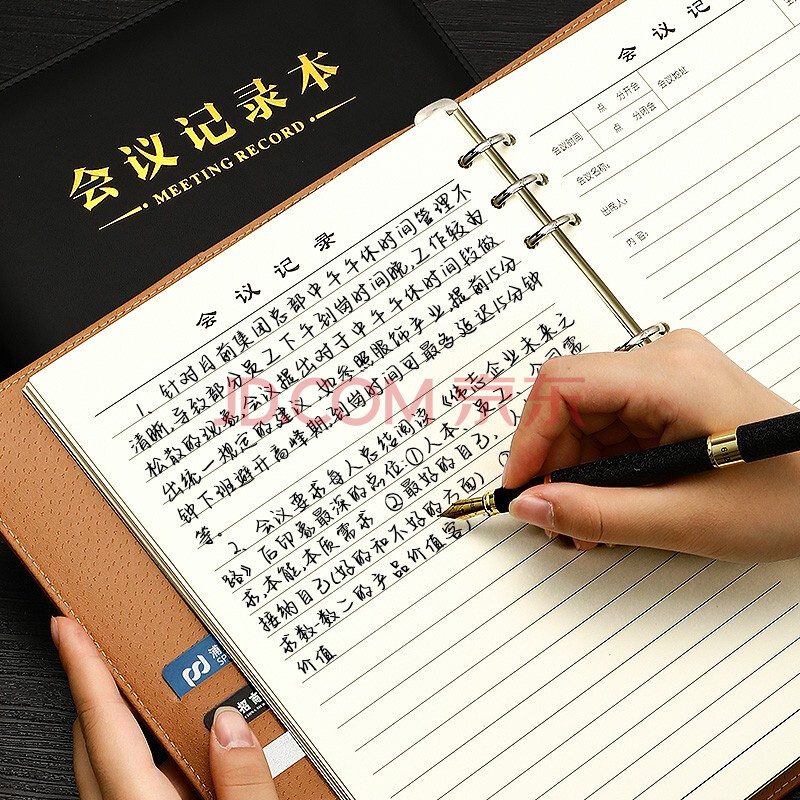 会议记录本
MEETING RECORD
会议记录
1、针对目前集团总部中午午休时间管理不
清晰,导致部份员工下午到岗时间晚,工作较为
松散的现象,会议提出对于中午午休时间段做
出统一规定的建议,也参照服饰产业,提前15分
钟下班避开高峰期,到岗时间可最多延迟15分钟
等。
2、会议要求每人总结阅读《伟志企业未来之
路》后印象最深的点位:①人本,员工,公司需
求,本能,本质需求 ②最好的自己,
接纳自己(好的和不好的方面)
求数·数心的产品价值客户
价值
会议记
会议时间
点 分开会
点 分闭会
会议地址
会议名称:
出席人:
内 容:
浦
SP
招商
JD.COM 京东